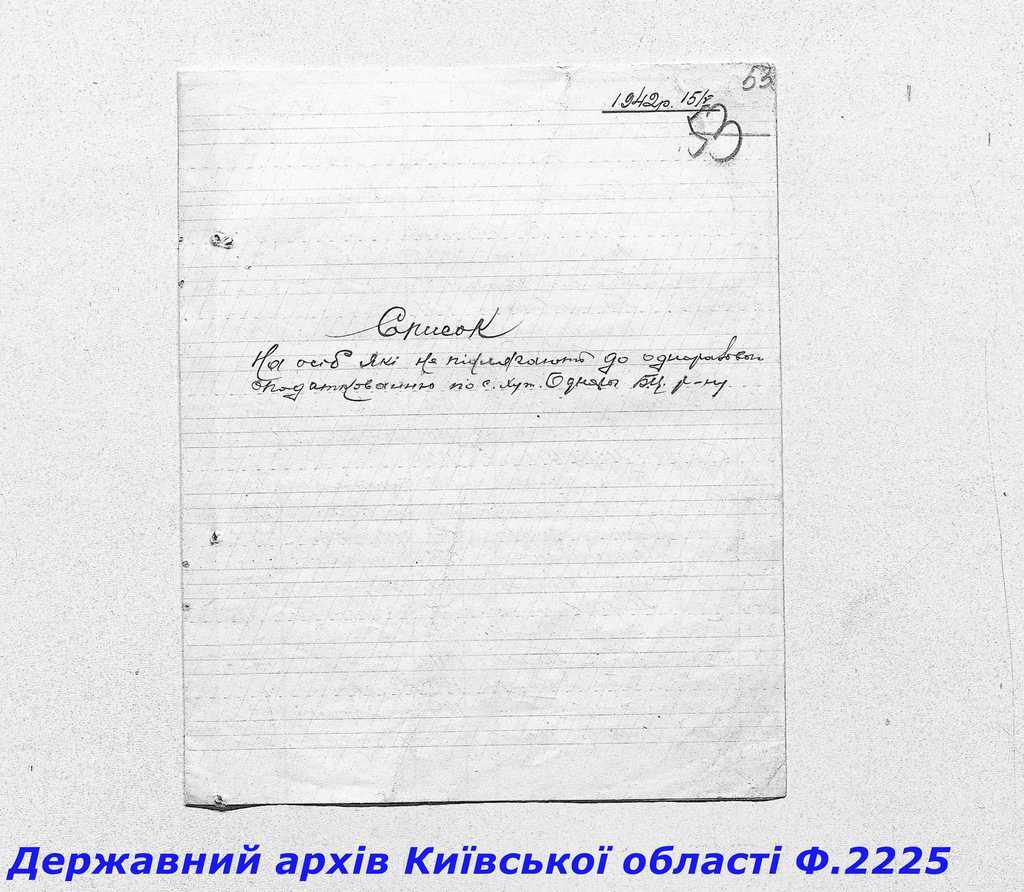 53
1942р. 15/V
53
Список
На осіб які не підлягають до одноразового
оподаткованню по с. Хут. Б.Ц. р-ну.
Державний архів Київської області Ф.2225